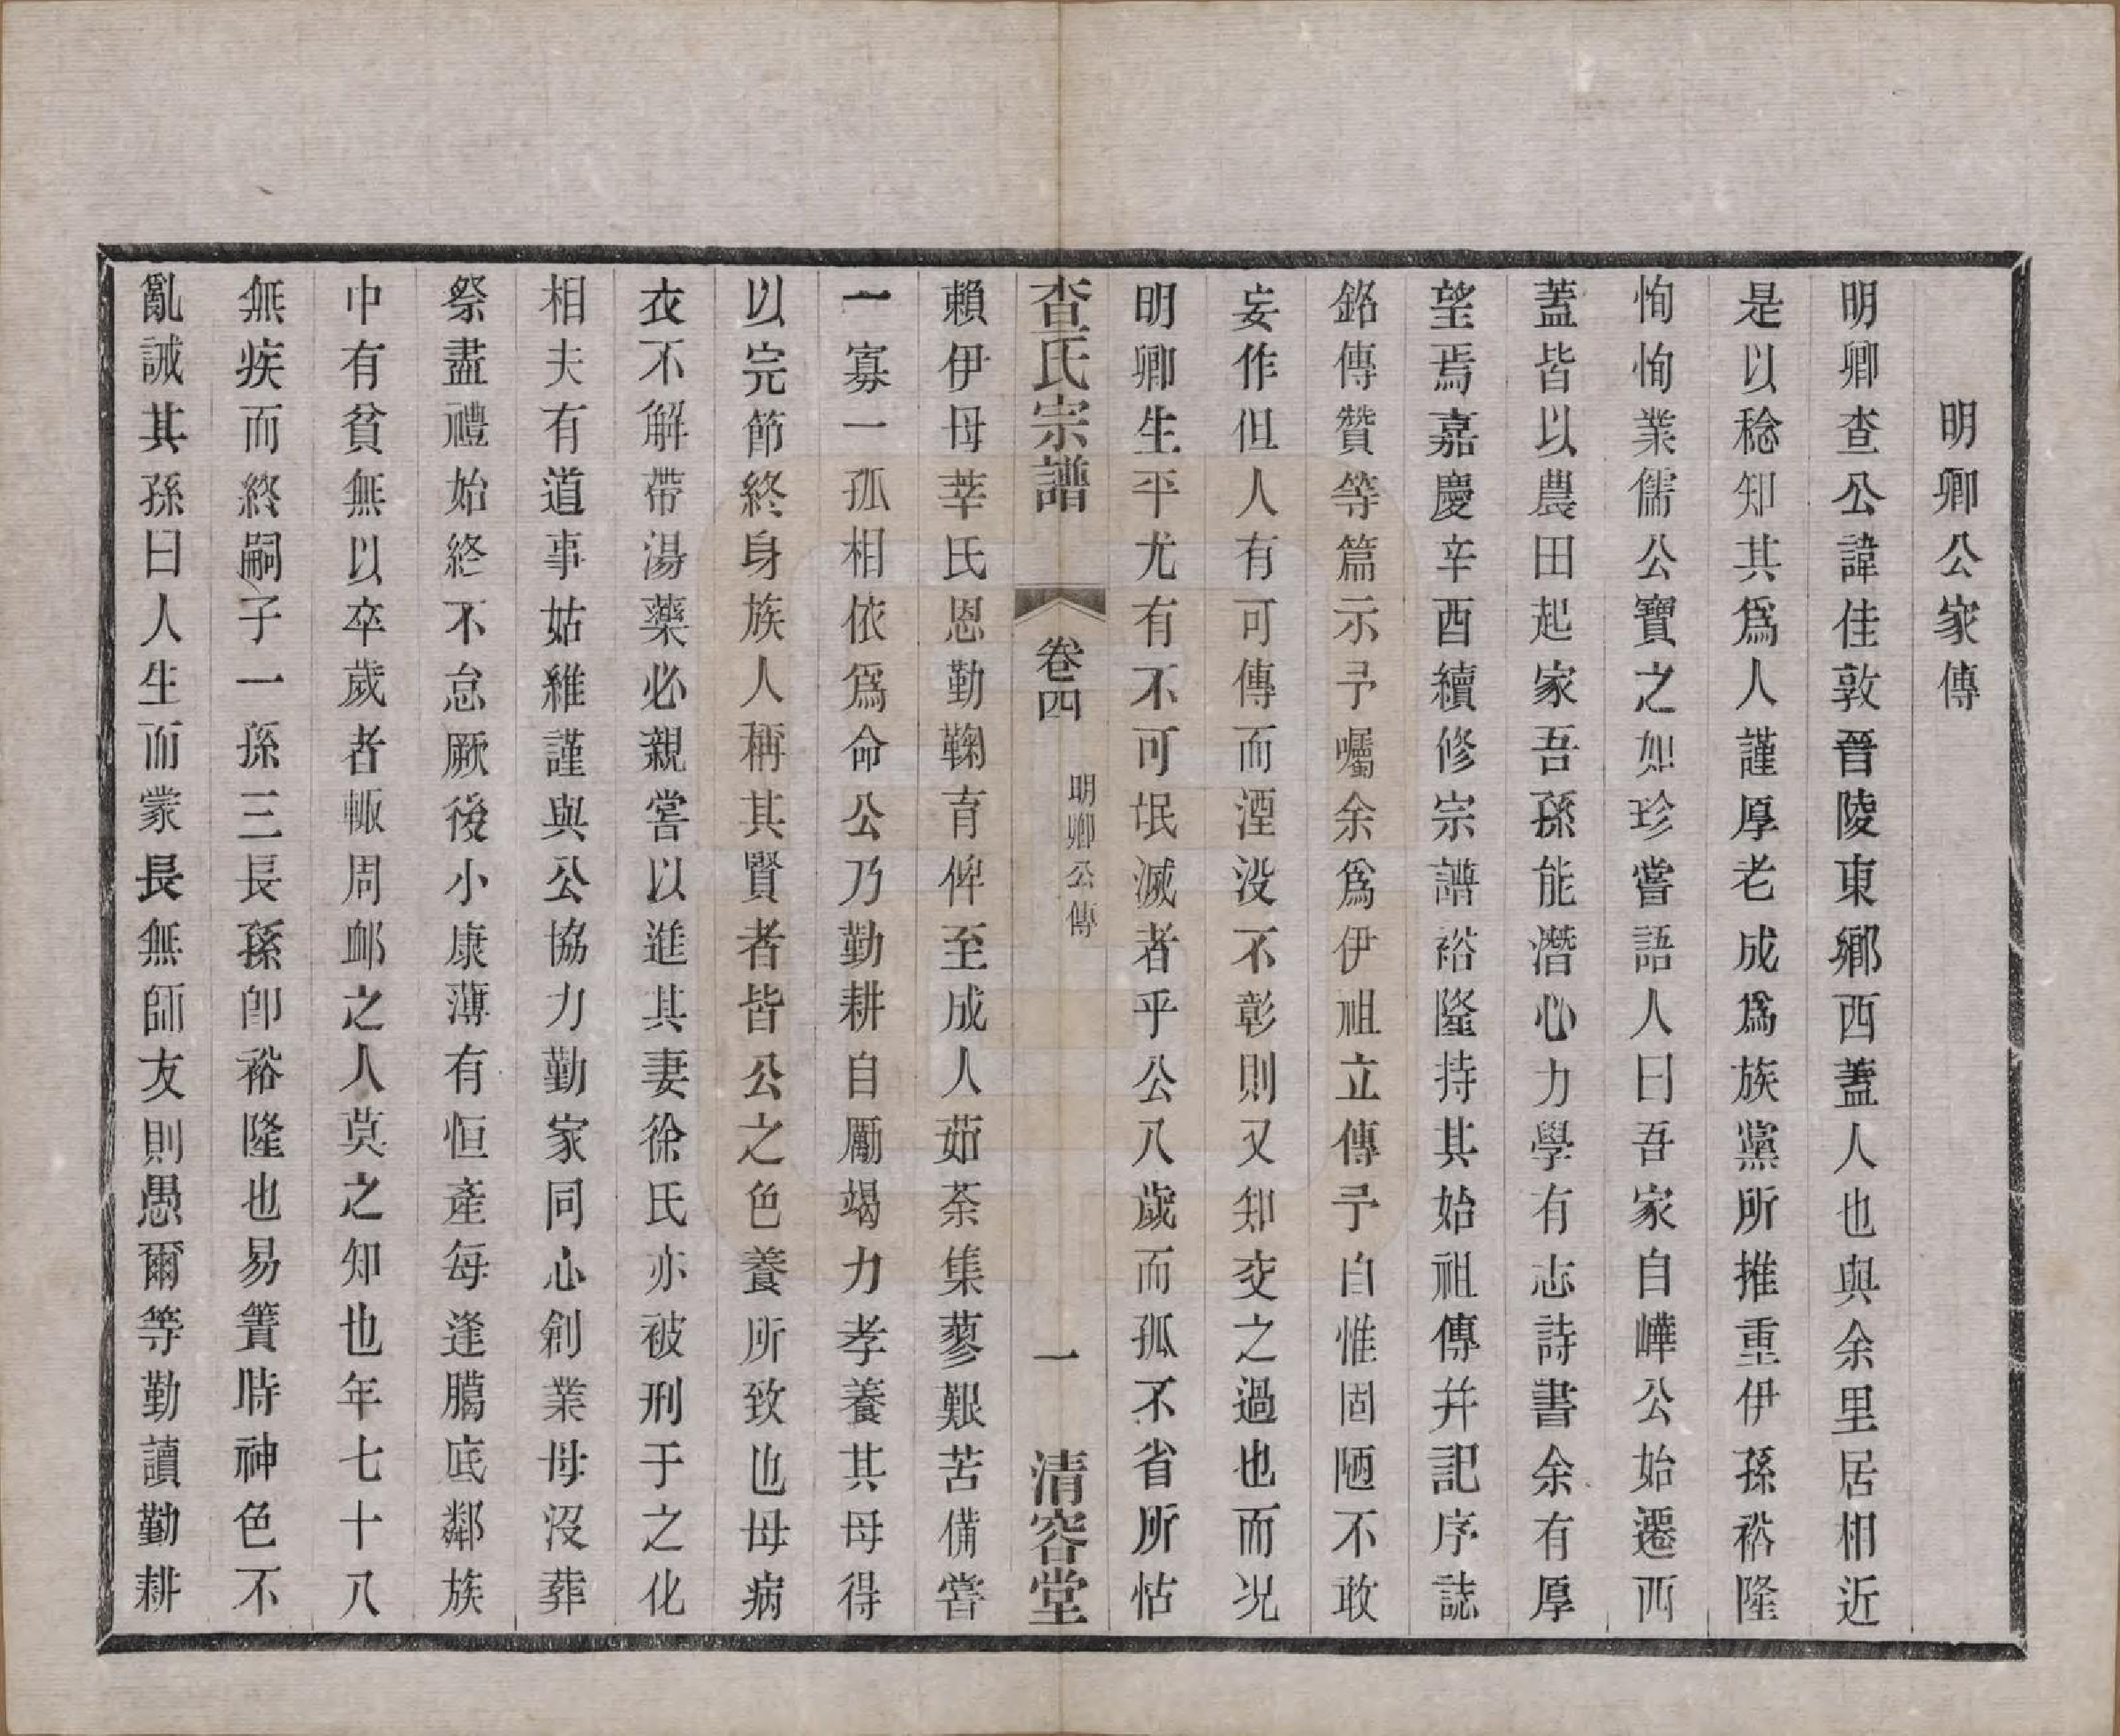 明卿公家傳
明卿查公諱佳敦晉陵東鄉西蓋人也與余里居相近
是以稔知其爲人謹厚老成爲族黨所推重伊孫裕隆
恂恂業儒公寶之如珍嘗語人曰吾家自曄公始遷西
蓋皆以農田起家吾孫能潛心力學有志詩書余有厚
望焉嘉慶辛酉續修宗譜裕隆持其始祖傳并記序誌
銘傳贊等篇示予囑余爲伊祖立傳予自惟固陋不敢
妄作但人有可傳而湮沒不彰則又知交之過也而况
明卿生平尤有不可氓滅者乎公八歲而孤不省所怙
查氏宗譜
卷四
明卿公傳
一
清容堂
賴伊母莘氏恩勤鞠育俾至成人茹荼集蓼艱苦備嘗
一寡一孤相依爲命公乃勤耕自勵竭力孝養其母得
以完節終身族人稱其賢者皆公之色養所致也母病
衣不解帶湯藥必親嘗以進其妻徐氏亦被刑于之化
相夫有道事姑維謹與公協力勤家同心創業母沒葬
祭盡禮始終不怠厥後小康薄有恒產每逢臈底鄰族
中有貧無以卒歲者輙周卹之人莫之知也年七十八
無疾而終嗣子一孫三長孫卽裕隆也易簀時神色不
亂誡其孫曰人生而蒙長無師友則愚爾等勤讀勤耕